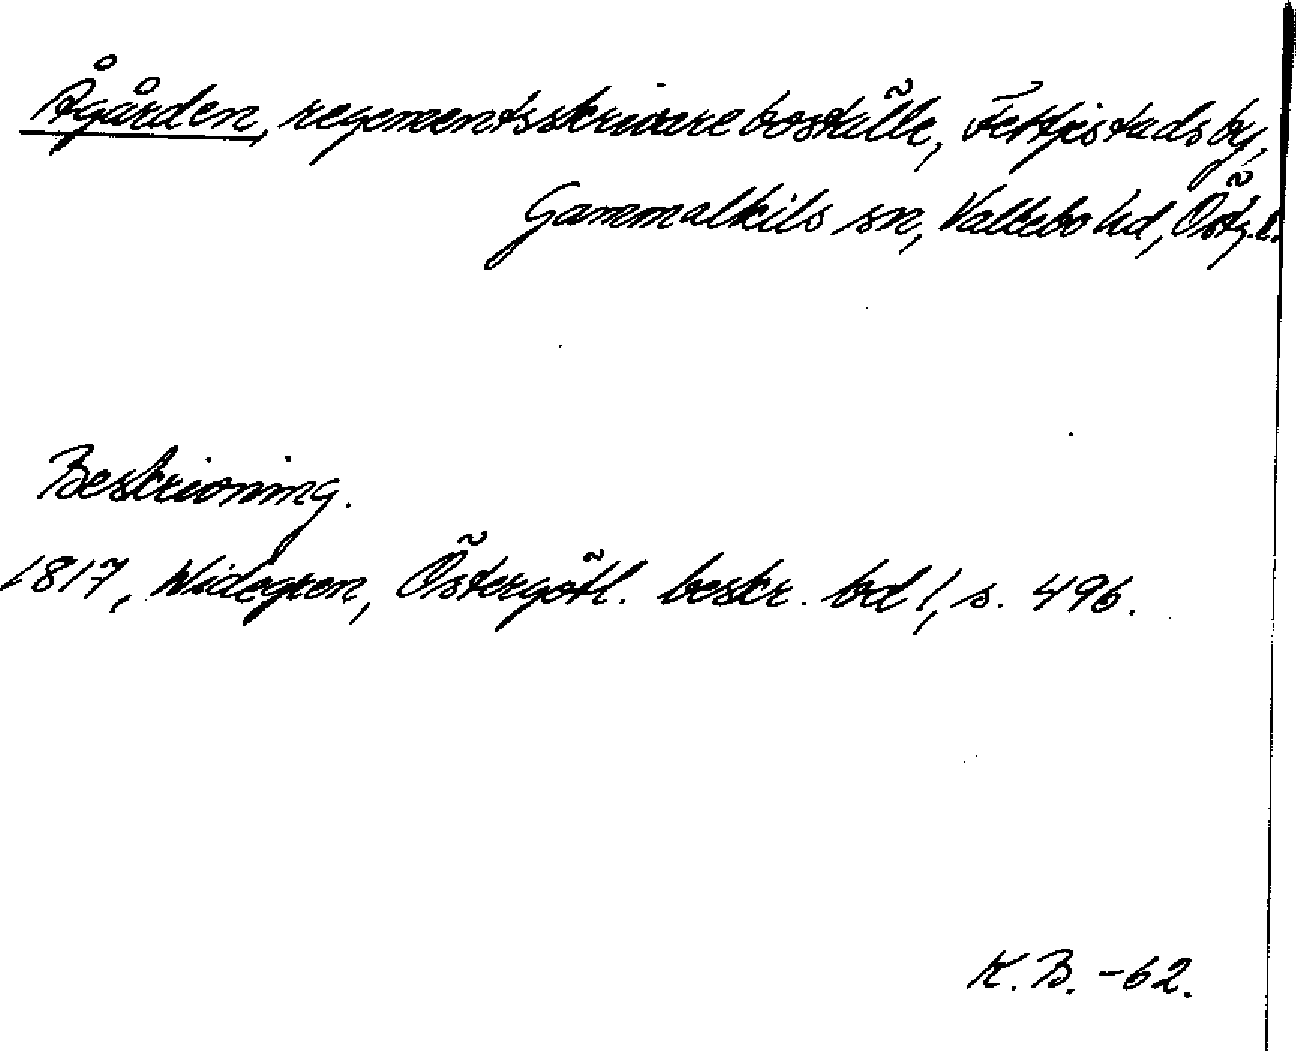 Ågården, regementsskrivareboställe, Fettjestads by,
Gammalkils sn, Valkebo hd, Östg.l.
Beskrivning.
1817, Widegren, Östergötl. beskr. bd 1, s. 496.
K.B. -62.